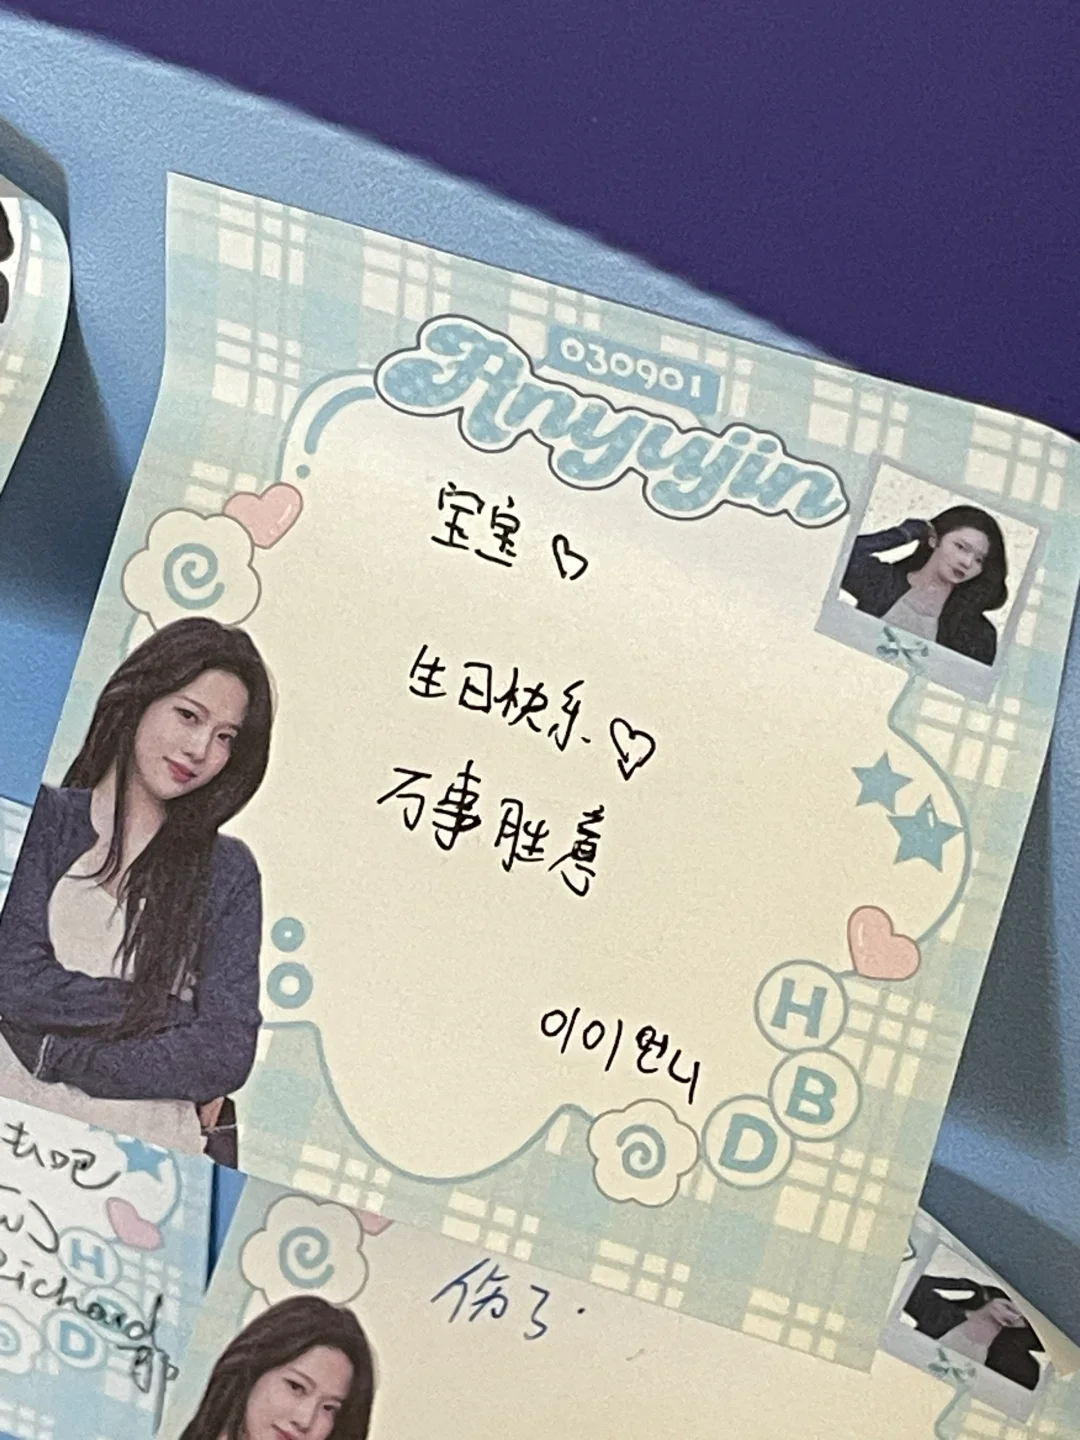 030901
Anyujin
宝宝♡
生日快乐♡
万事胜意
이이 언니
H
B
D
去吧
H
Richard
D
伤了.